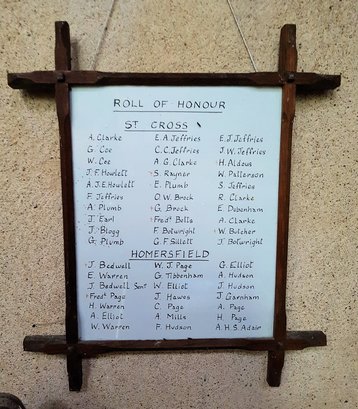 ROLL OF HONOUR
ST CROSS
A. Clarke E. A. Jeffries E. J. Jeffries
G. Coe C. C. Jeffries J. W. Jeffries
W. Coe A. G. Clarke H. Aldous
J. F. Howlett S. Rayner W. Patterson
A. J. E. Howlett E. Plumb S. Jeffries
F. Jeffries O. W. Brock R. Clarke
A. Plumb G. Brock E. Debenham
J. Earl Fredk Botts A. Clarke
J. Blogg F. Botwright W. Butcher
G. Plumb G. F. Sillett J. Botwright
HOMERSFIELD
J. Bedwell W. J. Page G. Elliot
E. Warren G. Tibbenham A. Hudson
J. Bedwell Senr W. Elliot J. Hudson
Fredk Page J. Hawes J. Garnham
H. Warren C. Page A. Page
A. Elliot A. Mills H. Page
W. Warren F. Hudson A. H. S. Adair